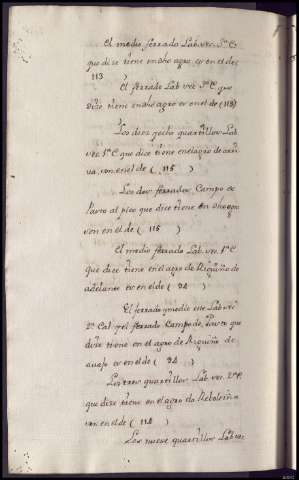 El medio ferrado Lab. vez. 3ª C.
que dice tiene en dho agro, es en el de (
113
El ferrado Lab vez 3ª C. que
dice tiene en dho agro es en el de (113)
Los diez y ocho quartillos Lab
vez. 1ª C. que dice tiene en el agro de
va, son en el de ( 115 )
Los dos ferrados Campo de
Pasto al pico que dice tiene en agro
son en el de ( 115 )
El medio ferrado Lab. vez. 1ª C
que dice tiene en el agro de Riguiño de
adelante es en el de ( 94 )
El ferrado y medio este Lab vez
2ª Cal. y el ferrado Campo de Pasto que
dice tiene en el agro de Riguiño de
avajo es en el de ( 94 )
Los tres quartillos Lab. vez. 2ª C.
que dice tiene en el agro da Reboleriña
son en el de ( 114 )
Los nueve quartillos Lab vez